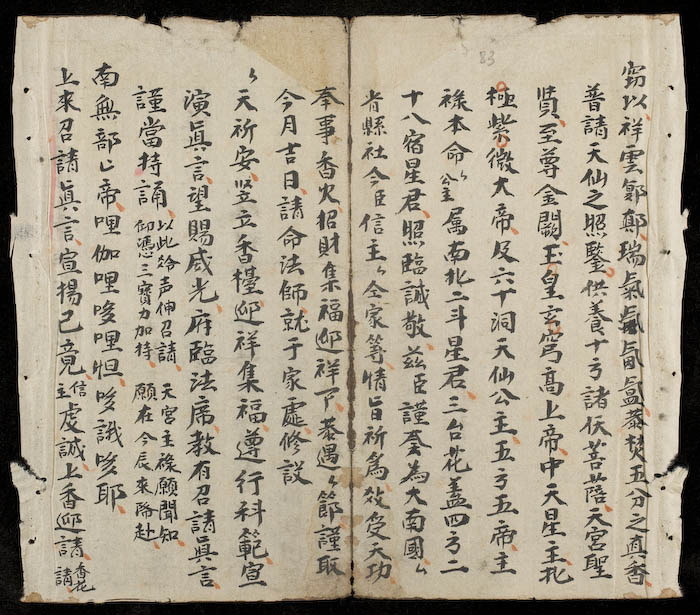 窃以祥雲郭鄭瑞氣氤氳恭焚五分之真香
普請天仙之照鑒供養十方諸伏菩薩天宮聖
賢至尊金闕玉皇玄穹高上帝中天星主北
極紫微大帝及六十洞天仙公主五方五帝主
祿本命公主属南北二斗星君三台花盖四方二
十八宿星君照臨誠敬兹臣謹奎為大南國〻
省縣社今臣信主〻仝家等情旨祈為效受天功
奉事香火招財集福迎祥下恭遇〻節謹取
今月吉日請命法師就于家處修設
〻天祈安竖立香檯迎祥集福遵行科範宣
演真言望賜威光府臨法席教有召請真言
謹當持誦以此鈴声伸召請天宮主祿願聞知
仰憑三寶力加持願在今辰來降赴
南無部〻帝哩伽哩哆哩怛哆誐哆耶
上來召請真言宣揚已竟信主虔誠上香迎請香花請
83